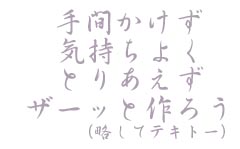 手間かけず
気持ちよく
とりあえず
ザーッと作ろう
(略してテキトー)